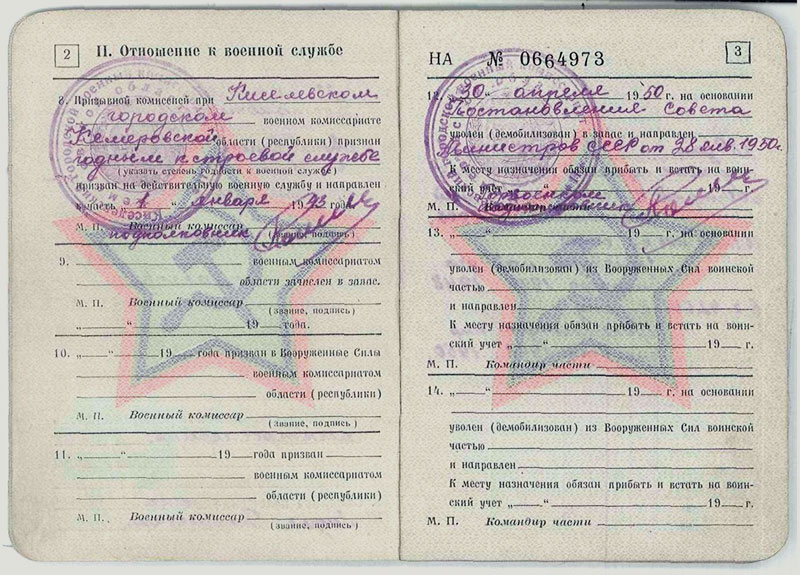 2
II. Отношение к военной службе
8. Призывной комиссией при Киселевском
городском военном комиссариате
Кемеровской области (республики) признан
годным к строевой службе
(указать степень годности к военной службе)
призван на действительную военную службу и направлен
в часть „ 1 “ января 1943 года.
М. П. Военный комиссар
подполковник
(звание, подпись)
9. военным комиссариатом
области зачислен в запас.
М. П. Военный комиссар
(звание, подпись)
„ “ 19 года.
10. „ “ 19 года призван в Вооруженные Силы
военным комиссариатом
области (республики)
М. П. Военный комиссар
(звание, подпись)
11. „ “ 19 года призван
военным комиссариатом
области (республики)
М. П. Военный комиссар
(звание, подпись)
НА № 0664973
3
12. „30“ апреля 1950 г. на основании
Постановления Совета
уволен (демобилизован) в запас и направлен
Министров СССР от 28 янв. 1950г.
К месту назначения обязан прибыть и встать на воин-
ский учет „ “ 19 г.
подполковник
М. П.
13. „ “ 19 г. на основании
уволен (демобилизован) из Вооруженных Сил воинской
частью
и направлен
К месту назначения обязан прибыть и встать на воин-
ский учет „ “ 19 г.
М. П. Командир части
14. „ “ 19 г. на основании
уволен (демобилизован) из Вооруженных Сил воинской
частью
и направлен
К месту назначения обязан прибыть и встать на воин-
ский учет „ “ 19 г.
М. П. Командир части